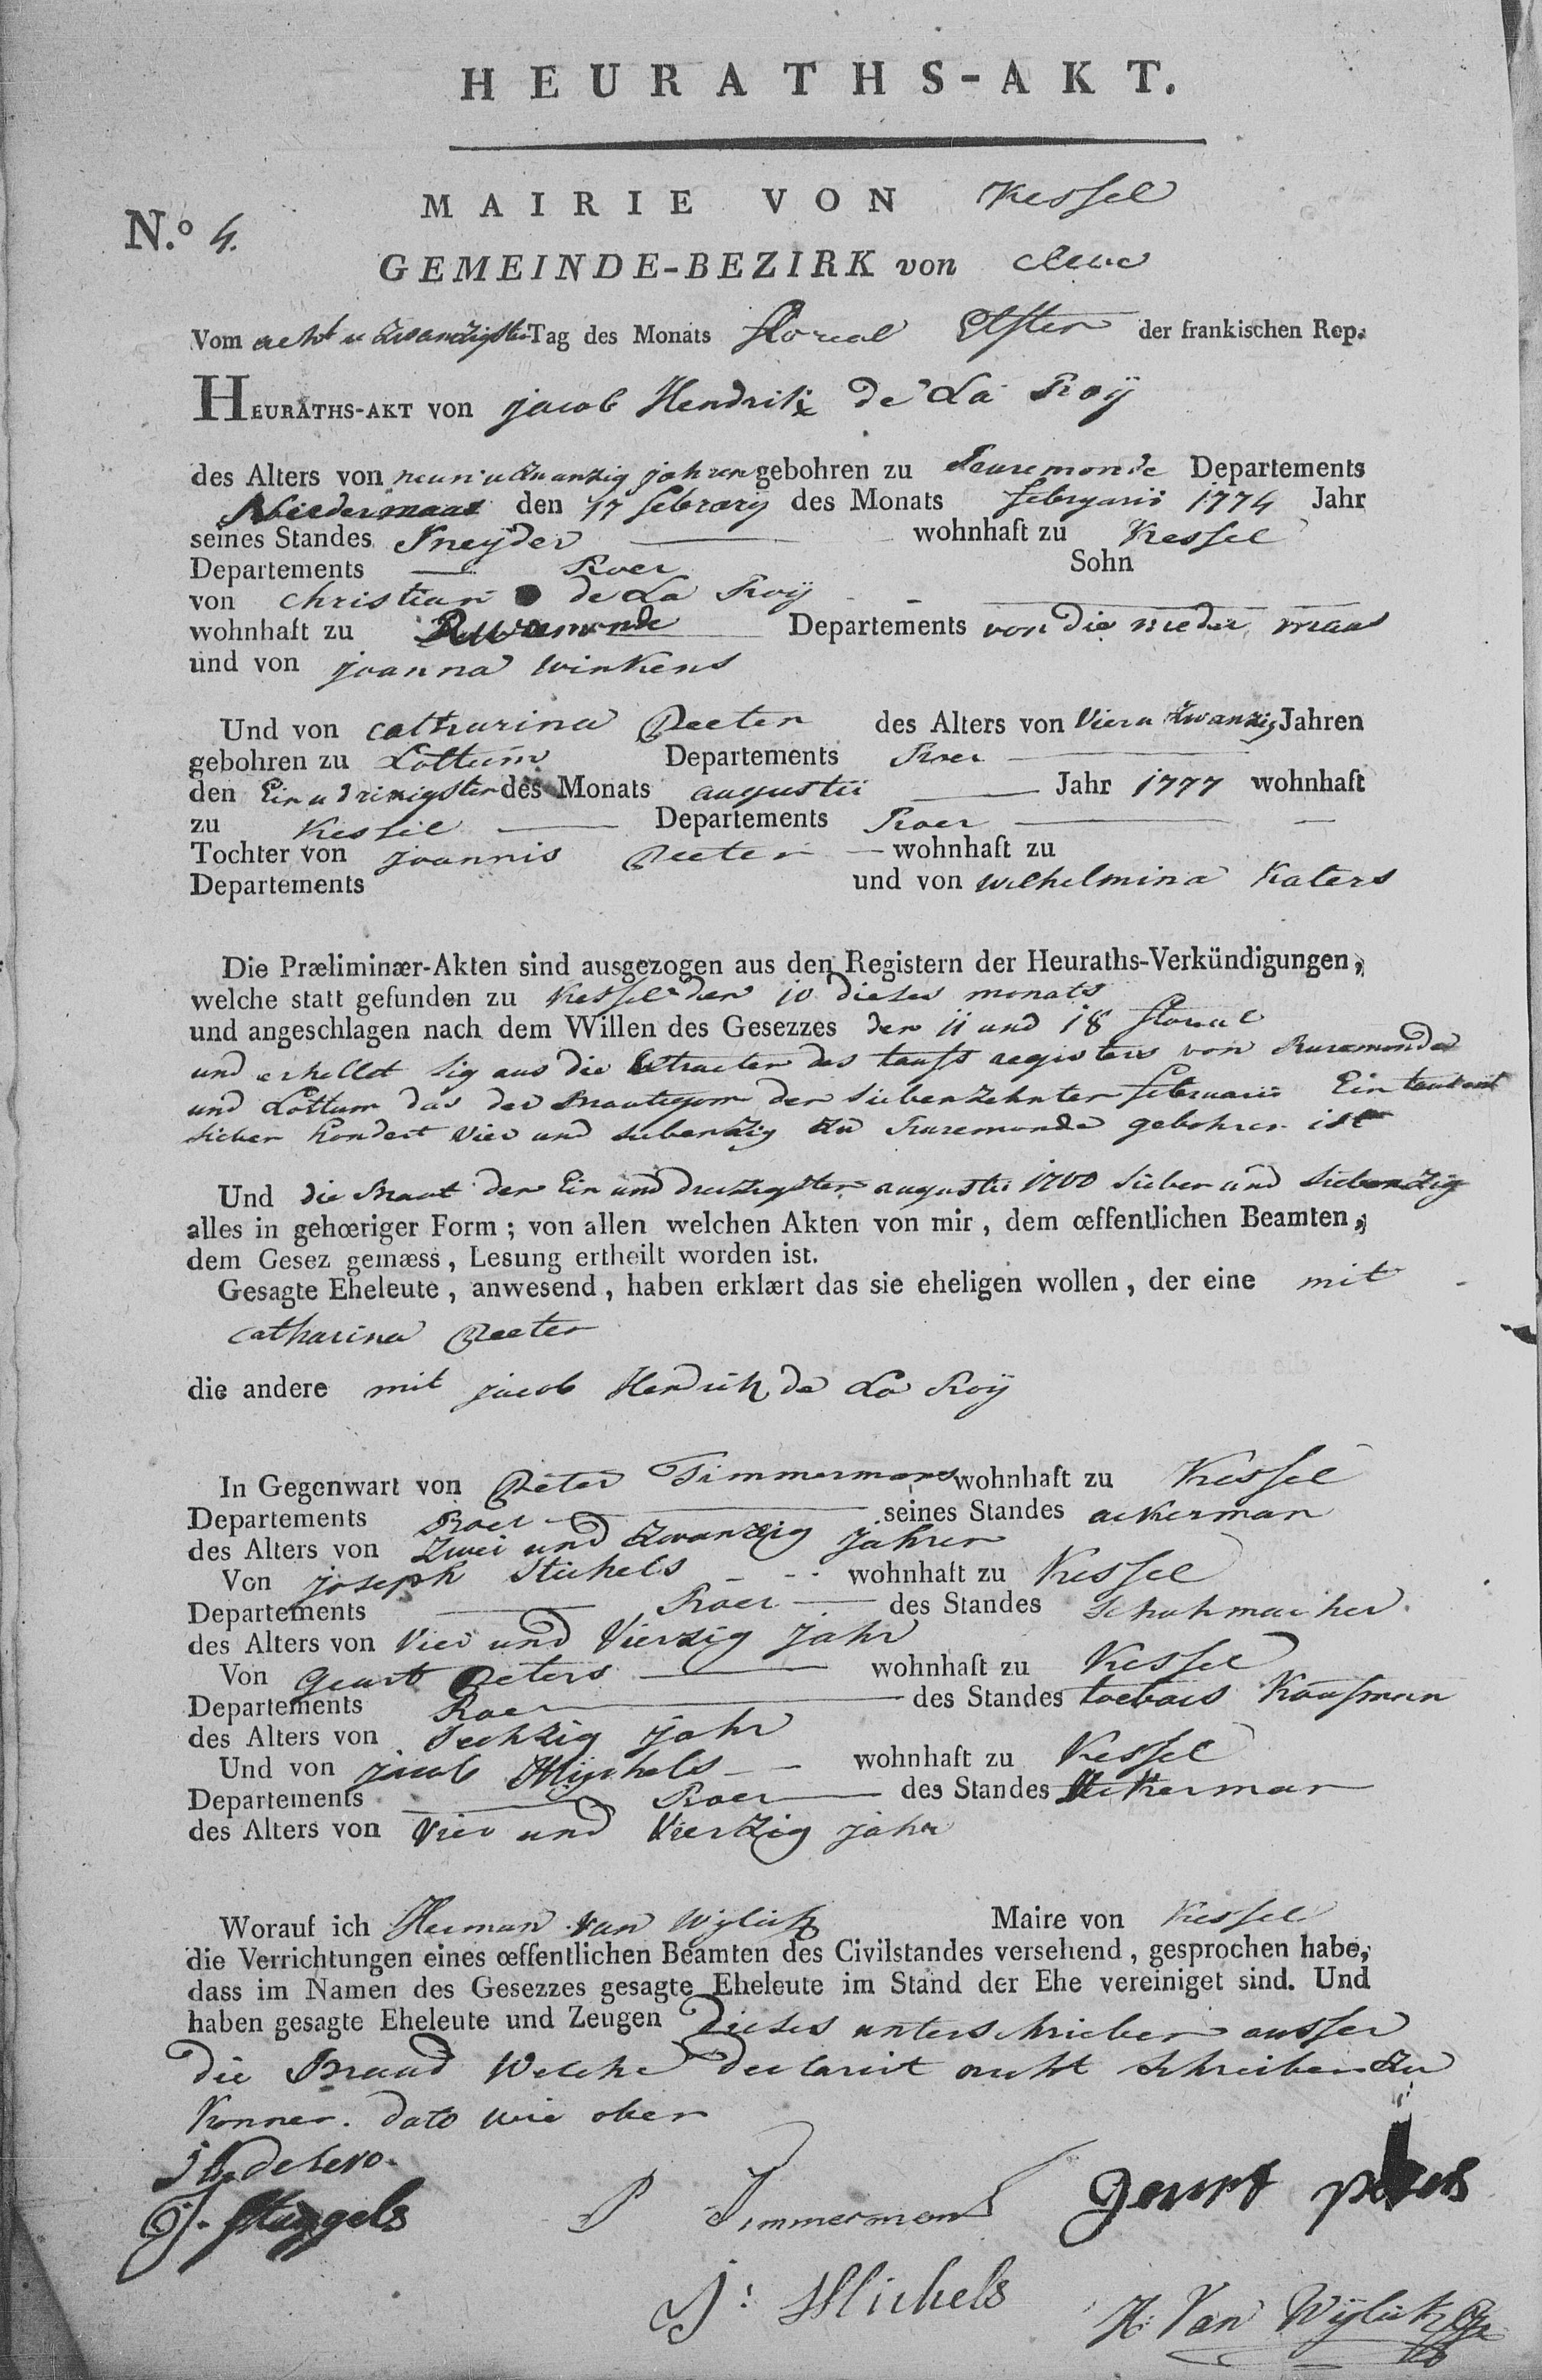 HEURATHS-AKT.
MAIRIE VON Kessel
N.o 4.
GEMEINDE-BEZIRK von Cleve
Vom acht u zwanzigster Tag des Monats floreal Elfter der frankischen Rep.
HEURATHS-AKT VON jacob Hendrik de La Roÿ
des Alters von neun u zwanzig jahren gebohren zu Ruremonde Departements
Niedermaas den 17 febrary des Monats februarii 1774 Jahr
seines Standes Sneÿder wohnhaft zu Kessel
Departements Roer Sohn
von christian de La Roÿ
wohnhaft zu Ruremonde Departements von die nieder maas
und von joanna winkens
Und von catharina Peeter des Alters von Vier u zwanzig Jahren
gebohren zu Lottum Departements Roer
den Ein u dreizigster des Monats augustii Jahr 1777 wohnhaft
zu Kessel Departements Roer
Tochter von joannis Peeter wohnhaft zu
Departements und von wilhelmina Katers
Die Præliminær-Akten sind ausgezogen aus den Registern der Heuraths-Verkündigungen,
welche statt gefunden zu Kessel den 10 dieses monats
und angeschlagen nach dem Willen des Gesezzes den 11 und 18 floreal
und erhellet sig aus die Extracten des taufs registers von Ruremonde
und Lottum das der Brautigom den siebenzehnten februarii Ein tausent
sieben hondert vier und siebenzig zu Ruremonde gebohren ist
Und die Braut den Ein und dreizigster augustii 1700 sieben und siebenzig
alles in gehœriger Form; von allen welchen Akten von mir, dem œffentlichen Beamten,
dem Gesez gemæss, Lesung ertheilt worden ist.
Gesagte Eheleute, anwesend, haben erklært das sie eheligen wollen, der eine mit
catharina Peeter
die andere mit jacob Hendrik de La Roÿ
In Gegenwart von Peter Timmermans wohnhaft zu Kessel
Departements Roer seines Standes ackerman
des Alters von zwei und zwanzig jahren
Von joseph Stichels wohnhaft zu Kessel
Departements Roer des Standes schuhmacher.
des Alters von Vier und Vierzig jahr
Von Geurt Peters wohnhaft zu Kessel
Departements Roer des Standes toebacs Kaufman
des Alters von sechzig jahr
Und von jacob Michels wohnhaft zu Kessel
Departements Roer des Standes Ackerman
des Alters von Vier und Vierzig jahr
Worauf ich Herman van Wylick Maire von Kessel
die Verrichtungen eines œffentlichen Beamten des Civilstandes versehend, gesprochen habe,
dass im Namen des Gesezzes gesagte Eheleute im Stand der Ehe vereiniget sind. Und
haben gesagte Eheleute und Zeugen dieses unterschrieben ausser
die Braud welche declarirt nicht schreiben zu
konnen. dato wie oben
J. Stuggels P Timmermans Geurt peters
J: Michels H: Van Wÿlick